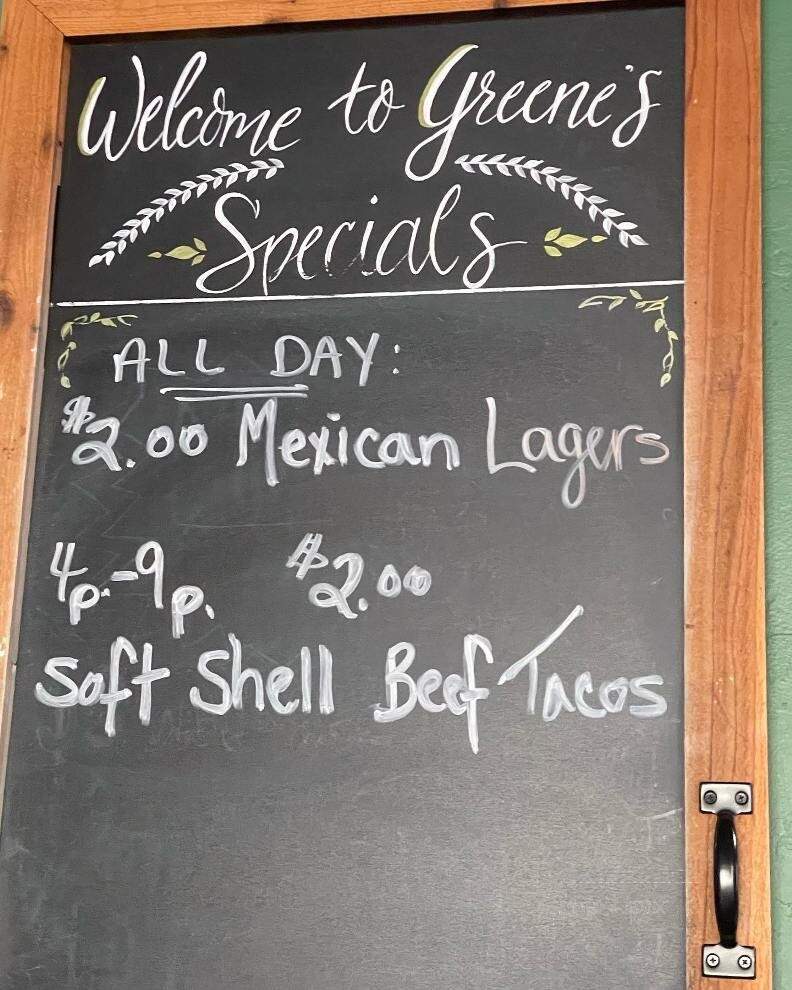 Welcome to Greene's
Specials
ALL DAY:
$2.00 Mexican Lagers
4p.-9p. $2.00
Soft Shell Beef Tacos